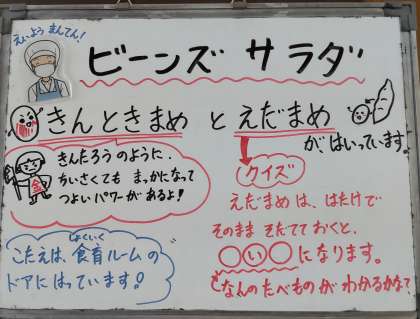 えいよう まんてん!
ビーンズ サラダ
きんときまめ と えだまめ
が、はいっています。
きんたろうのように、
ちいさくても まっかになって
つよいパワーがあるよ!
金
クイズ
えだまめは、はたけで
そのまま そだてておくと、
○い○になります。
なんのたべものが わかるかな?
しょくいく
こたえは、食育ルームの
ドアにはっています!